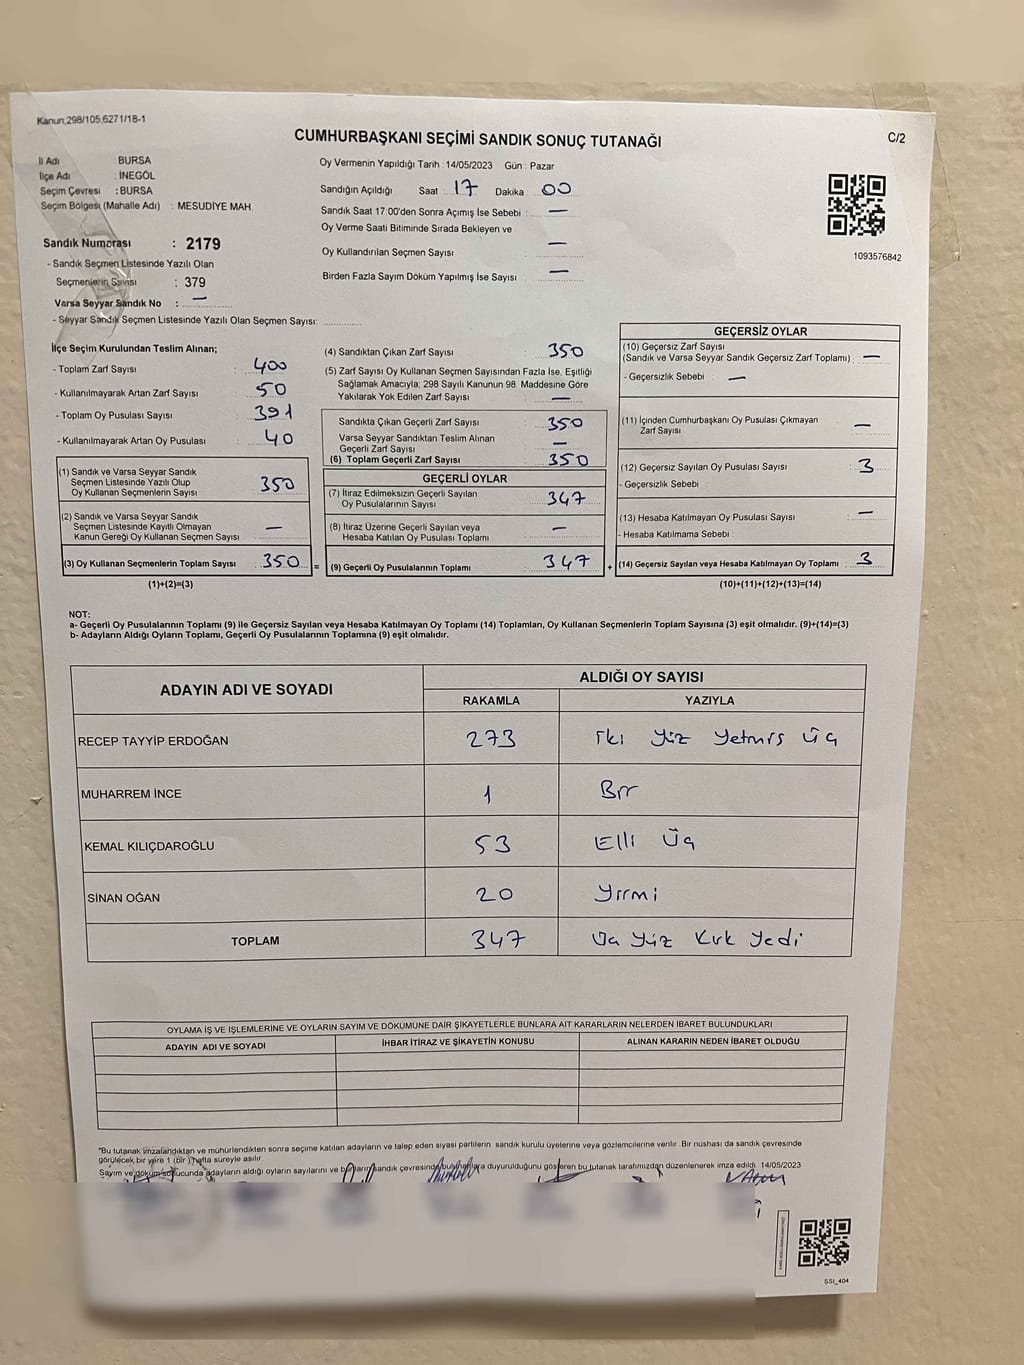 Kanun;298/105;6271/18-1
C/2
CUMHURBAŞKANI SEÇİMİ SANDIK SONUÇ TUTANAĞI
İl Adı : BURSA
İlçe Adı : İNEGÖL
Seçim Çevresi : BURSA
Seçim Bölgesi (Mahalle Adı) : MESUDİYE MAH.
Sandık Numarası : 2179
- Sandık Seçmen Listesinde Yazılı Olan
Seçmenlerin Sayısı : 379
Varsa Seyyar Sandık No : —
- Seyyar Sandık Seçmen Listesinde Yazılı Olan Seçmen Sayısı:
Oy Vermenin Yapıldığı Tarih : 14/05/2023 Gün : Pazar
Sandığın Açıldığı Saat : 17 Dakika : 00
Sandık Saat 17:00'den Sonra Açımış İse Sebebi : —
Oy Verme Saati Bitiminde Sırada Bekleyen ve
Oy Kullandırılan Seçmen Sayısı : —
Birden Fazla Sayım Döküm Yapılmış İse Sayısı : —
1093576842
İlçe Seçim Kurulundan Teslim Alınan;
- Toplam Zarf Sayısı : 400
- Kullanılmayarak Artan Zarf Sayısı : 50
- Toplam Oy Pusulası Sayısı : 391
- Kullanılmayarak Artan Oy Pusulası : 40
(1) Sandık ve Varsa Seyyar Sandık
Seçmen Listesinde Yazılı Olup
Oy Kullanan Seçmenlerin Sayısı : 350
(2) Sandık ve Varsa Seyyar Sandık
Seçmen Listesinde Kayıtlı Olmayan
Kanun Gereği Oy Kullanan Seçmen Sayısı : —
(3) Oy Kullanan Seçmenlerin Toplam Sayısı : 350
(1)+(2)=(3)
(4) Sandıktan Çıkan Zarf Sayısı : 350
(5) Zarf Sayısı Oy Kullanan Seçmen Sayısından Fazla İse, Eşitliği
Sağlamak Amacıyla; 298 Sayılı Kanunun 98. Maddesine Göre
Yakılarak Yok Edilen Zarf Sayısı : —
Sandıkta Çıkan Geçerli Zarf Sayısı : 350
Varsa Seyyar Sandıktan Teslim Alınan
Geçerli Zarf Sayısı : —
(6) Toplam Geçerli Zarf Sayısı : 350
GEÇERLİ OYLAR
(7) İtiraz Edilmeksizin Geçerli Sayılan
Oy Pusulalarının Sayısı : 347
(8) İtiraz Üzerine Geçerli Sayılan veya
Hesaba Katılan Oy Pusulası Toplamı : —
= (9) Geçerli Oy Pusulalarının Toplamı : 347
GEÇERSİZ OYLAR
(10) Geçersiz Zarf Sayısı
(Sandık ve Varsa Seyyar Sandık Geçersiz Zarf Toplamı) : —
- Geçersizlik Sebebi : —
(11) İçinden Cumhurbaşkanı Oy Pusulası Çıkmayan
Zarf Sayısı : —
(12) Geçersiz Sayılan Oy Pusulası Sayısı : 3
- Geçersizlik Sebebi :
(13) Hesaba Katılmayan Oy Pusulası Sayısı : —
- Hesaba Katılmama Sebebi :
+ (14) Geçersiz Sayılan veya Hesaba Katılmayan Oy Toplamı : 3
(10)+(11)+(12)+(13)=(14)
NOT:
a- Geçerli Oy Pusulalarının Toplamı (9) ile Geçersiz Sayılan veya Hesaba Katılmayan Oy Toplamı (14) Toplamları, Oy Kullanan Seçmenlerin Toplam Sayısına (3) eşit olmalıdır. (9)+(14)=(3)
b- Adayların Aldığı Oyların Toplamı, Geçerli Oy Pusulalarının Toplamına (9) eşit olmalıdır.
ADAYIN ADI VE SOYADI
ALDIĞI OY SAYISI
RAKAMLA YAZIYLA
RECEP TAYYİP ERDOĞAN 273 İki Yüz Yetmiş Üç
MUHARREM İNCE 1 Bir
KEMAL KILIÇDAROĞLU 53 Elli Üç
SİNAN OĞAN 20 Yirmi
TOPLAM 347 Üç Yüz Kırk Yedi
OYLAMA İŞ VE İŞLEMLERİNE VE OYLARIN SAYIM VE DÖKÜMÜNE DAİR ŞİKAYETLERLE BUNLARA AİT KARARLARIN NELERDEN İBARET BULUNDUKLARI
ADAYIN ADI VE SOYADI İHBAR İTİRAZ VE ŞİKAYETİN KONUSU ALINAN KARARIN NEDEN İBARET OLDUĞU
*Bu tutanak imzalandıktan ve mühürlendikten sonra seçime katılan adayların ve talep eden siyasi partilerin sandık kurulu üyelerine veya gözlemcilerine verilir. Bir nüshası da sandık çevresinde
görülecek bir yere 1 (bir ) hafta süreyle asılır.
Sayım ve döküm sonucunda adayların aldığı oyların sayılarını ve bunların sandık çevresinde bulunanlara duyurulduğunu gösteren bu tutanak tarafımızdan düzenlenerek imza edildi. 14/05/2023
SSI_404